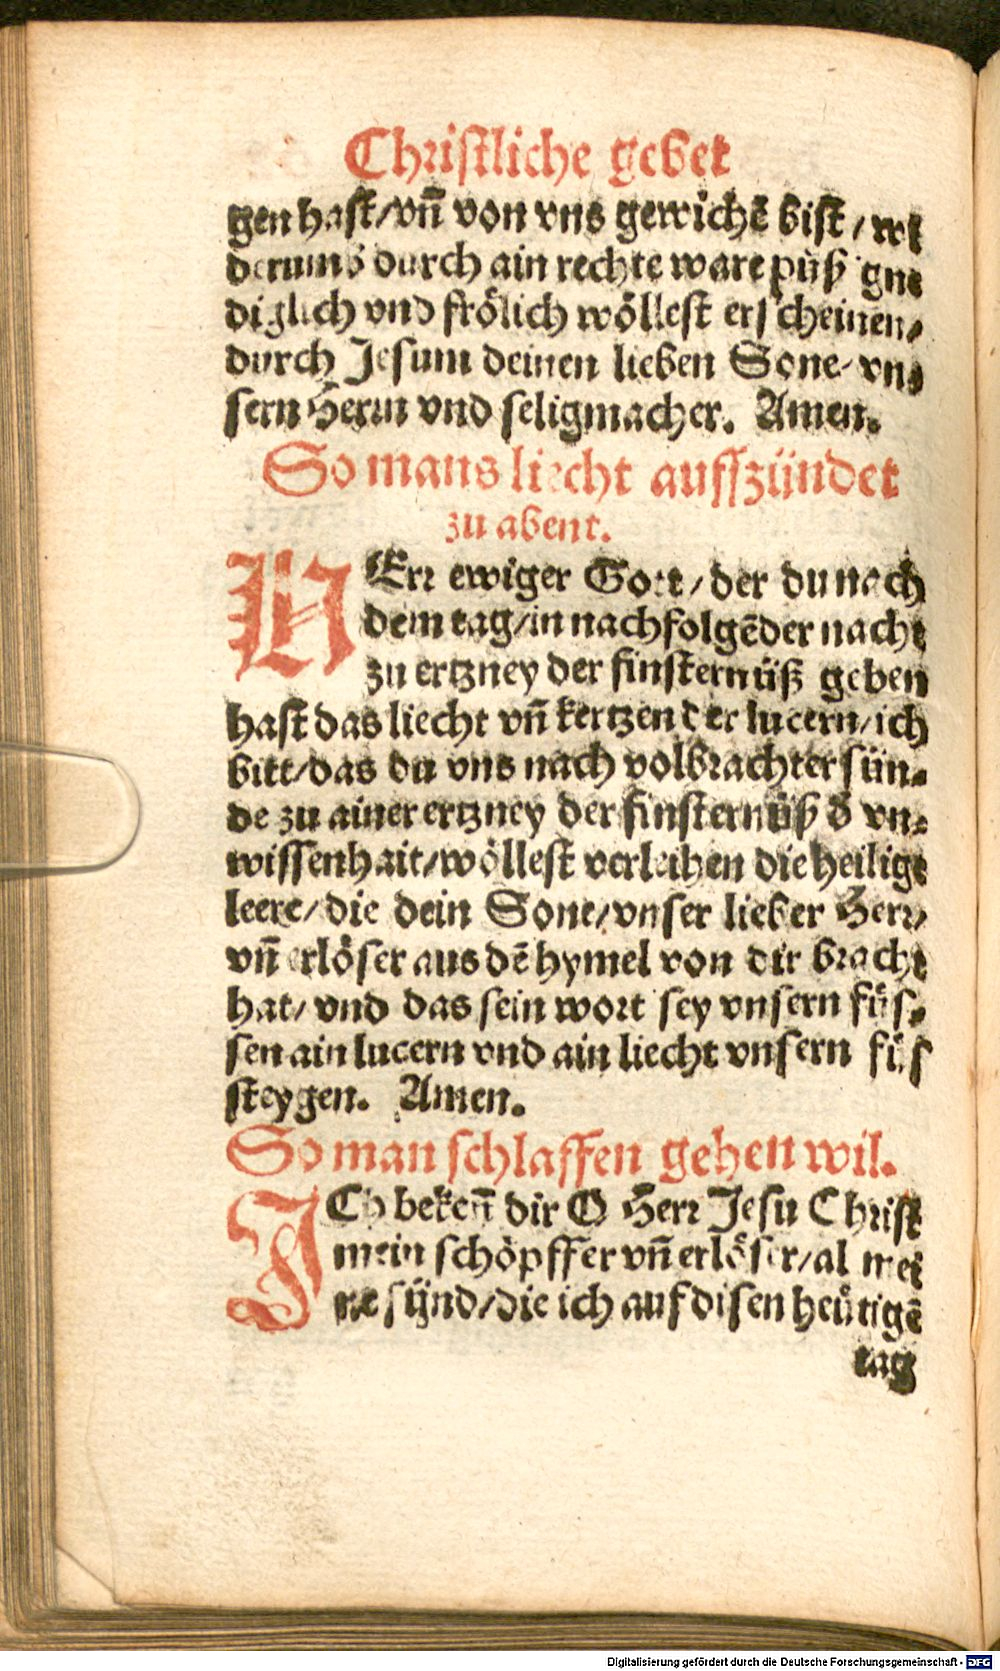 Christliche gebet
gen hast/vñ von vns gewichẽ bist/wi
derumb durch ain rechte ware püß gne
diglich vnd frölich wöllest erscheinen/
durch Jesum deinen lieben Sone/vn⸗
sern Herrn vnd seligmacher. Amen.
So mans liecht auffzündet
zu abent.
HErr ewiger Gott/der du nach
dem tag/in nachfolgẽder nacht
zu ertzney der finsternüß geben
hast das liecht vñ kertzen der lucern/ich
bitt/das du vns nach volbrachter sün⸗
de zu ainer ertzney der finsternüß d̕ vn⸗
wissenhait/wöllest verleihen die heilige
leere/die dein Sone/vnser lieber Herr/
vñ erlöser aus dẽ hymel von dir bracht
hat/vnd das sein wort sey vnsern füs⸗
sen ain lucern vnd ain liecht vnsern füs
steygen. Amen.
So man schlaffen gehen wil.
ICh bekeñ dir O Herr Jesu Christ
mein schöpffer vñ erlöser/al mei
ne sünd/die ich auf disen heütigẽ
tag
Digitalisierung gefördert durch die Deutsche Forschungsgemeinschaft - DFG